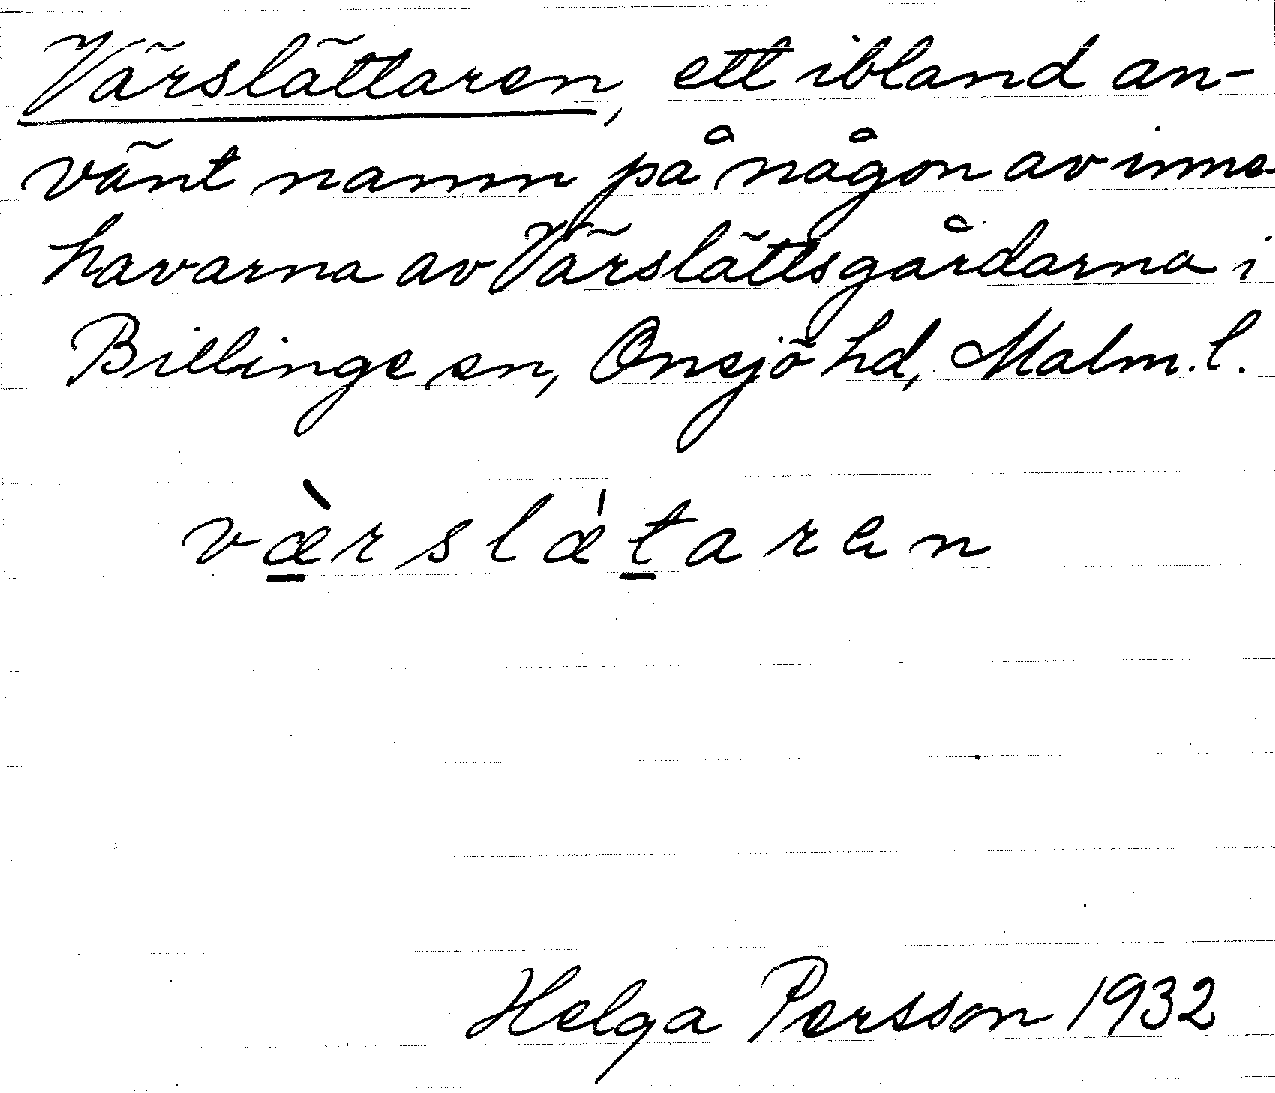 Värslättaren, ett ibland an-
vänt namn på någon av inne-
havarna av Värslättsgårdarna i
Billinge sn, Onsjö hd, Malm.l.
væ̱̀rslǽṯaren
Helga Persson 1932